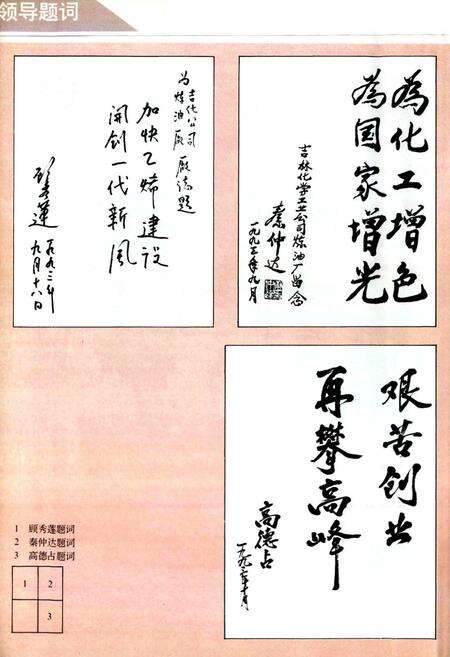 领导题词
为吉化公司
炼油厰 厰志题
加快乙烯建设
开创一代新风
顾秀莲
一九九三年
九月十八日
為化工增色
為国家增光
吉林化学工业公司炼油厂留念
秦仲达
一九九三年九月
艰苦创业
再攀高峰
高德占
一九九三年十月
1 顾秀莲题词
2 秦仲达题词
3 高德占题词
1 2
3